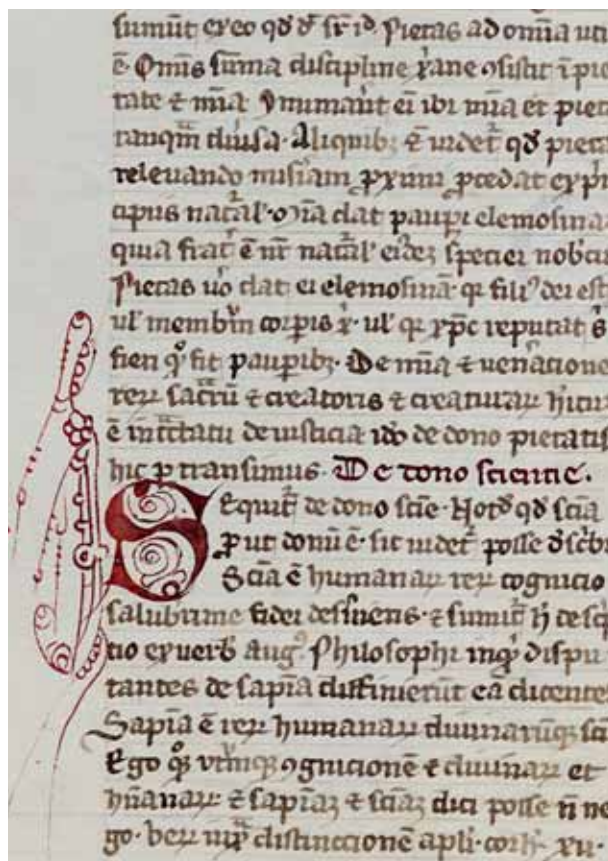 sumūt ex eo qd̄ d̄r s̄r id. Pietas ad omīa uti
ē. Om̄is sum̄a discipline xp̄iane ɔsistit ī pie
tate ⁊ mīa
tanqm̄ diu̓sa. Aliquibꝫ ⁊ uidet᷑ qd̄ pieta
releuando mis̓iam ꝓximi ꝓcedat ex p̄i
cipiis nat᷑al. dat paup̓i elemosina
quia frat᷑ ē nr̄ nat᷑al eiꝰdeꝫ speciei nobcū
Pietas ū̊ dat ei elemosinā. qꝛ filiꝰ dei est
ul̓ membr̄m corp̓is x̄. ul̓ qꝛ xp̄c reputat s̄
fieri qͦ fit paup̓ibꝫ. De mīa ⁊ uen̓acione
reꝝ sac̓rū ⁊ creatoris ⁊ creaturaꝝ
ē in tͣctatu de iusticia ido̓ de dono pietatis
hic p̓transimus. De dono sciencie.
Sequit᷑ de dono sciē. Notd̄ qd̄ sciā
ꝓut donū ē. sic uidet᷑ posse d̓sc̓bi
Sciā ē humanaꝝ reꝝ cognicio
saluberrime fidei des̓uiens. ⁊ sumit᷑ h̄ desc̓p
tio ex uerb̄ augꝰ. Philosophi inq̓ dispu
tantes de sapīa diffinierūt eā dicente
Sapīa ē reꝝ humanaꝝ diuinarūqꝫ sci
Ego qͦꝫ vt̓mqꝫ ɔgnicionē ⁊ diuinaꝝ et
hūanaꝝ ⁊ sapīaꝫ ⁊ sciāꝫ dici posse n̄ ne
go. distinccionē apl̓i. corī. xii.